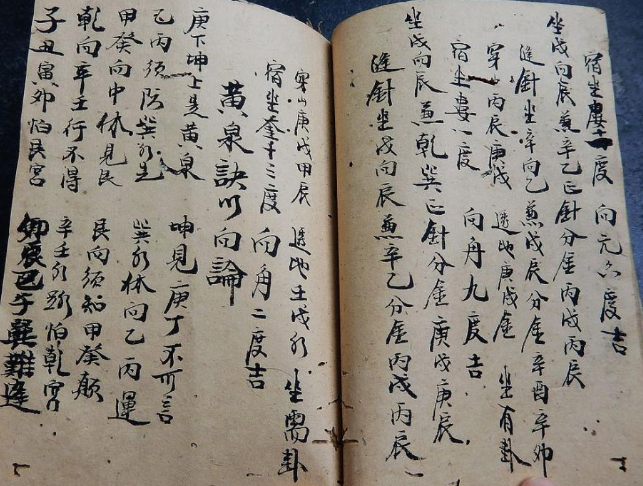 宿坐婁度 向元六度吉
坐戌向辰兼辛乙正針分金丙戌丙辰
縫針坐辛向乙兼戌辰分金辛酉辛卯
穿山丙辰庚戌 透地庚戌金 坐有卦
宿坐婁一度 向角九度吉
坐戌向辰兼乾巽正針分金庚戌庚辰
縫針坐戌向辰兼辛乙分金丙戌丙辰
穿山庚戌甲辰 透地戌水 坐需卦
宿坐奎十三度 向角二度吉
黃泉訣以向論
庚下坤上是黃泉 坤見庚丁不可言
乙丙須防巽水先 巽水休向乙丙運
甲癸向中休見艮 艮向須知甲癸顛
乾向辛壬行不得 辛壬水路怕乾宮
子丑寅卯怕艮宮 卯辰巳午巽難逢